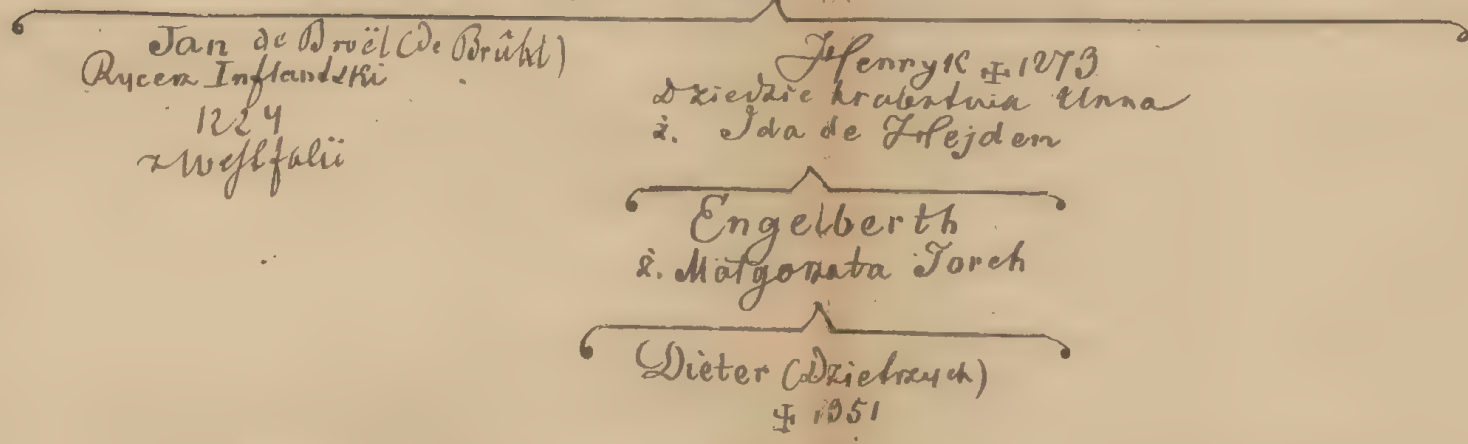 Jan de Broël (de Brühl)
Rycerz Inflandzki
1224
z Westfalii
Henryk ✠ 1273
Dziedzic hrabstwia Unna
ż. Ida de Hejden
Engelberth
ż. Małgorzata Torch
Dieter (Dzietrzych)
✠ 1351